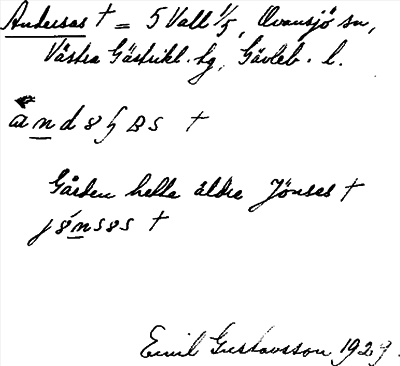 Andersas † = 5 Vall 1/5, Ovansjö sn,
Västra Gästrikl. tg, Gävleb. l.
Gården hette äldre Jönsas †
Emil Gustavsson 1929.